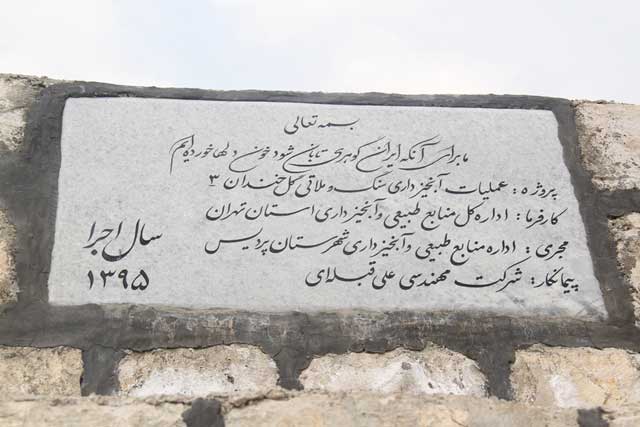 بسمه تعالی
ما برای آنکه ایران گوهری تابان شود خون دلها خورده ایم
پروژه : عملیات آبخیزداری سنگ و ملاتی گل خندان ۳
کارفرما : اداره کل منابع طبیعی و آبخیزداری استان تهران
مجری : اداره منابع طبیعی و آبخیزداری شهرستان پردیس
پیمانکار : شرکت مهندسی علی قبله‌ای
سال اجرا
۱۳۹۵